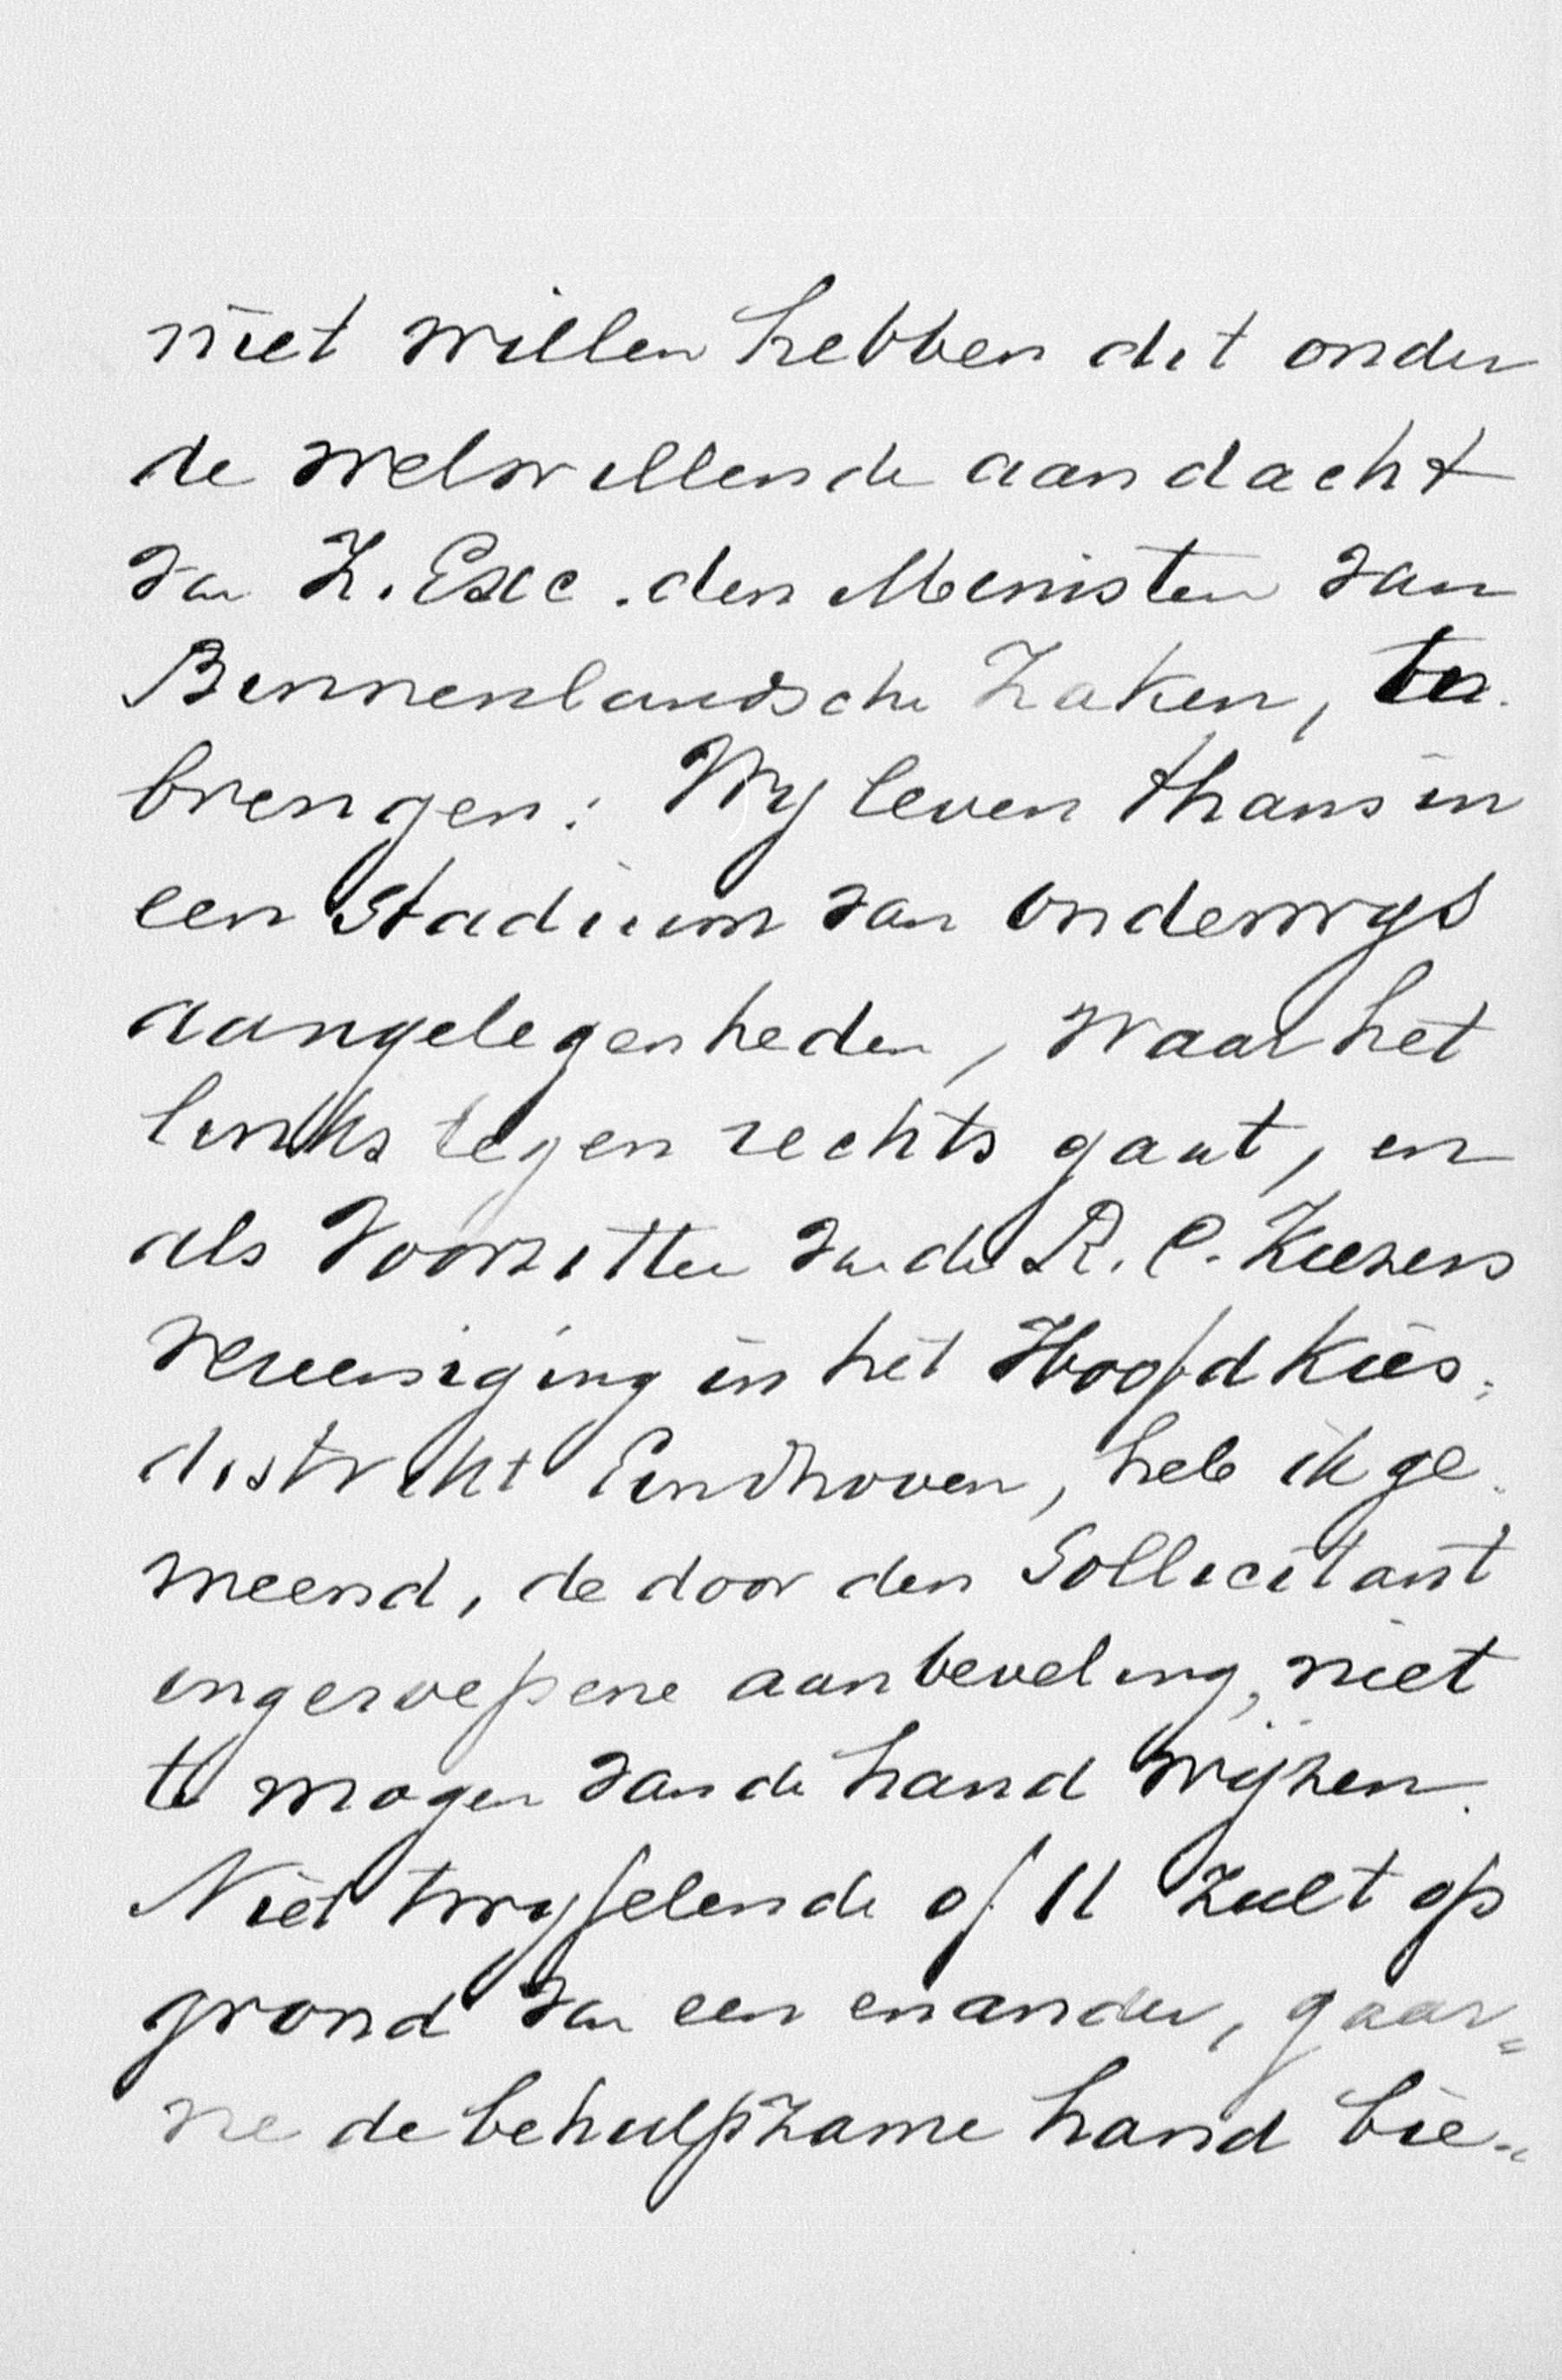 niet willen hebben dit onder
de welwillende aandacht
van Z. Exc. den Minister van
Binnenlandsche Zaken, te
brengen: Wy leven thans in
een Stadium van onderwys
aangelegenheden, waar het
links tegen rechts gaat, en
als Voorzitter van de R. C. Kiezers
vereeniging in het Hoofd Kies=
distrikt Eindhoven, heb ik ge=
meend, de door den Sollicitant
ingeroepene aanbeveling, niet
te mogen van de hand wijzen.
Niet twyfelende of U zult op
grond van een en ander, gaar=
ne de behulpzame hand bie=